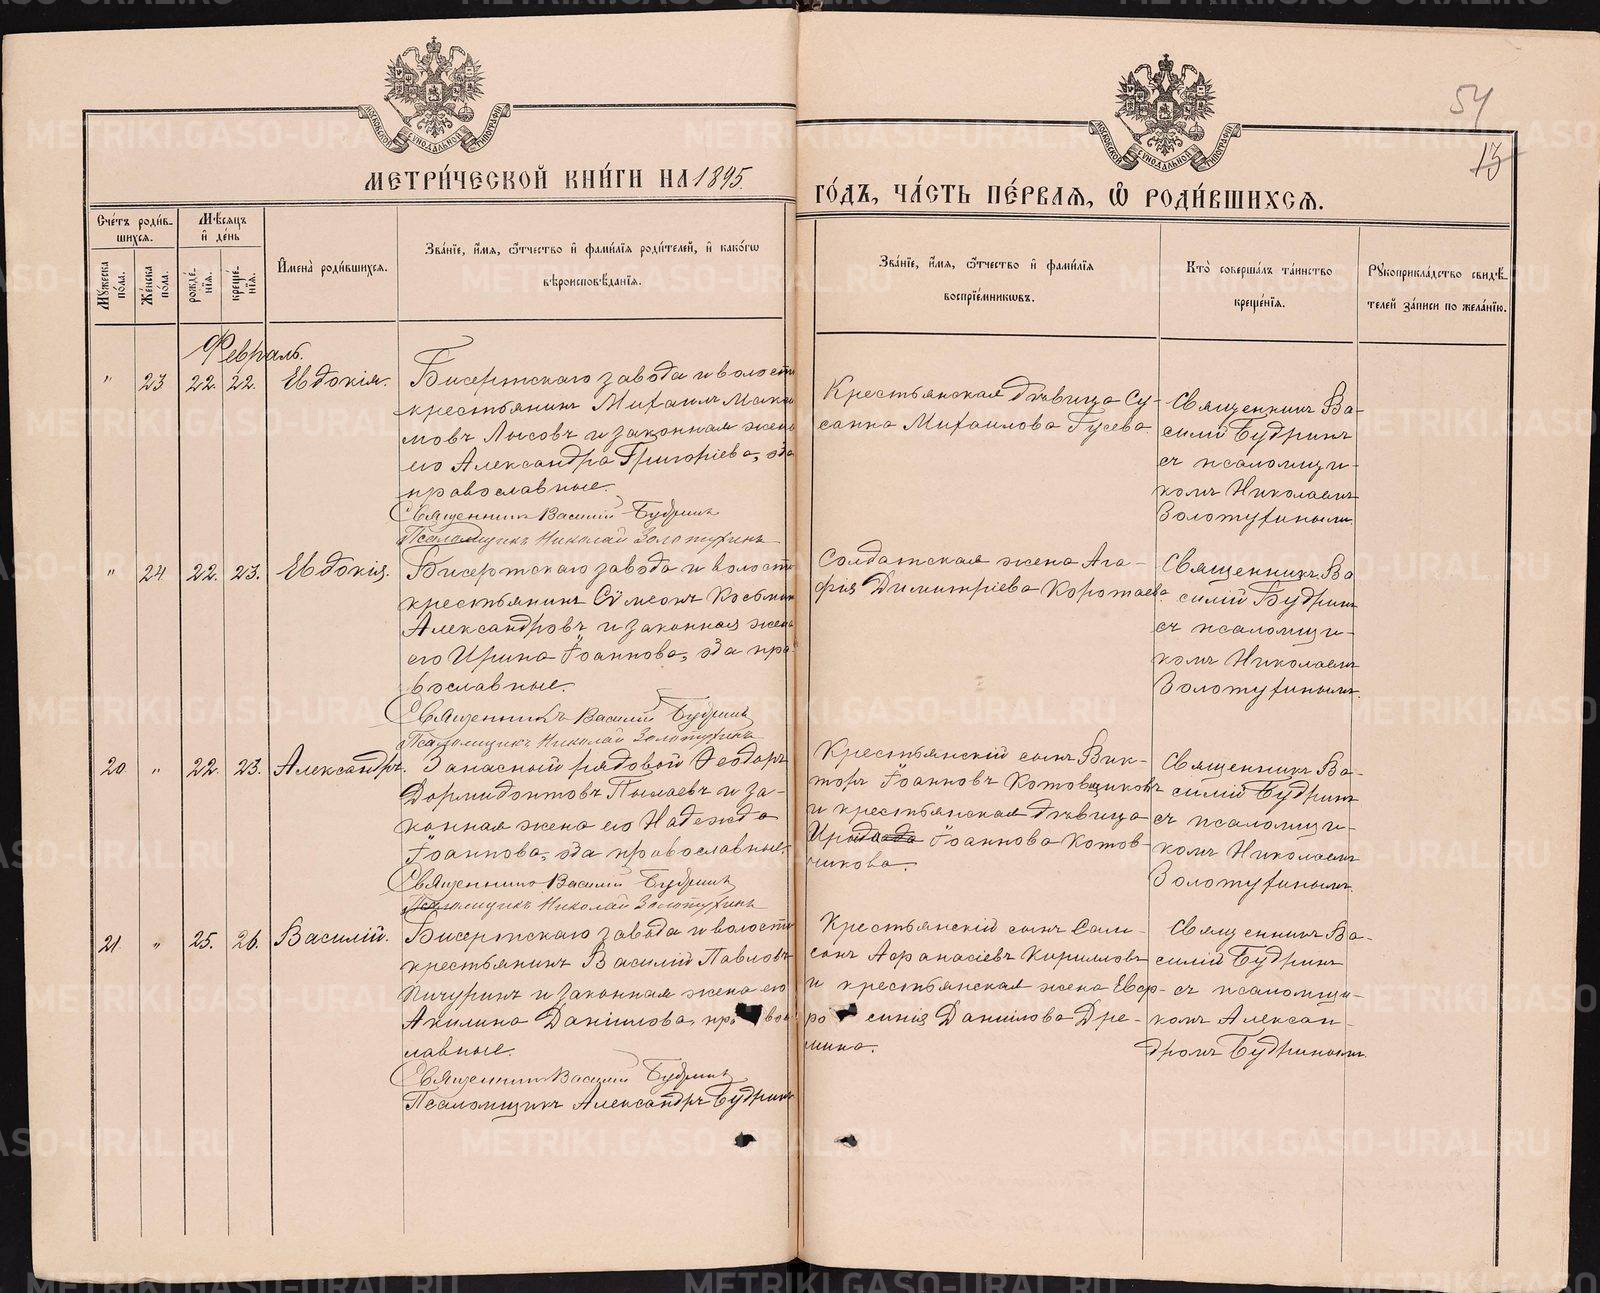 МОСКОВСКОЙ СѴНОДАЛЬНОЙ ТИПОГРАФІИ
МОСКОВСКОЙ СѴНОДАЛЬНОЙ ТИПОГРАФІИ
54
13
МЕТРИ́ЧЕСКОЙ КНИ́ГИ НА 1895
ГО́ДЪ, ЧА́СТЬ ПЕ́РВАѦ, Ѡ҆ РОДИ́ВШИХСѦ.
Сче́тъ роди́вшихся.
Мѣ́сяцъ и҆ де́нь
Му́жеска по́ла.
Же́нска по́ла.
рожде́нїя.
креще́нїя.
И҆мена̀ роди́вшихся.
Зва́нїе, и҆́мя, ѻ҆́тчество и҆ фами́лїя роди́телей, и҆ како́гѡ
вѣроисповѣ́данїя.
Зва́нїе, и҆́мя, ѻ҆́тчество и҆ фами́лїя
воспрїе́мникѡвъ.
Кто̀ соверша́лъ та́инство
креще́нїя.
Рꙋкоприкла́дство свидѣ́-
телей за́писи по жела́нїю.
Февраль.
" 23 22. 22. Евдокія.
Бисертскаго завода и волости
крестьянинъ Михаилъ Макси
мовъ Лысовъ и законная жена
его Александра Григоріева, оба
православные.
Священникъ Василій Будринъ
Псаломщикъ Николай Золотухинъ
Крестьянская дѣвица Су-
санна Михаилова Гусева
Священникъ Ва-
силій Будринъ
съ псаломщи-
комъ Николаемъ
Золотухинымъ.
" 24 22. 23. Евдокія.
Бисертскаго завода и волости
крестьянинъ Сѵмеонъ Косьмин
Александровъ и законная жена
его Ирина Іоаннова, оба пра-
вославные.
Священникъ Василій Будринъ
Псаломщикъ Николай Золотухинъ
Солдатская жена Ага-
фія Димитріева Коротаева
Священникъ Ва
силій Будринъ
съ псаломщи-
комъ Николаемъ
Золотухинымъ.
20 " 22. 23. Александръ.
Запасный рядовой Ѳеодоръ
Дормидонтовъ Пылаевъ и за-
конная жена его Надежда
Іоаннова, оба православные.
Священникъ Василій Будринъ
Псаломщикъ Николай Золотухинъ
Крестьянскій сынъ Вик-
торъ Іоанновъ Котовщиковъ
и крестьянская дѣвица
Іоаннова Котов-
чикова.
Священникъ Ва-
силій Будринъ
съ псаломщи-
комъ Николаемъ
Золотухинымъ.
21 " 25. 26. Василій.
Бисертскаго завода и волости
крестьянинъ Василій Павловъ
Пичуринъ и законная жена его
Акилина Даніилова, пр вос
лавные.
Священникъ Василій Будринъ
Псаломщикъ Александръ Будринъ
Крестьянскій сынъ Сам-
сонъ Афанасіевъ Кирилловъ
и крестьянская жена Евф-
ро синія Даніилова Дре-
мина.
Священникъ Ва-
силій Будринъ
съ псаломщи-
комъ Алексан-
дромъ Будринымъ.